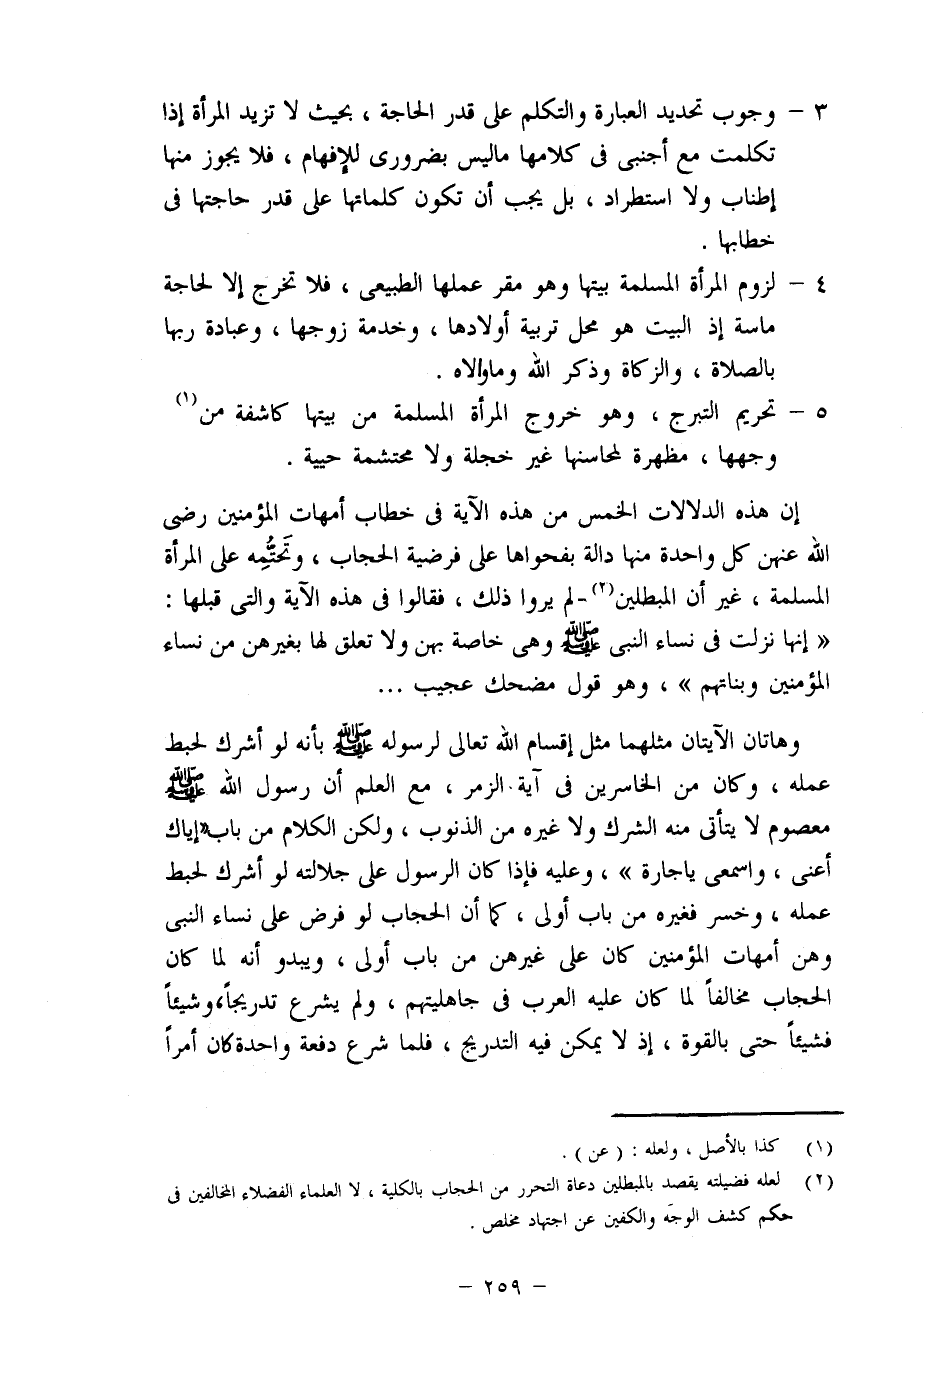 ٣ – وجوب تحديد العبارة والتكلم على قدر الحاجة ، بحيث لا تزيد المرأة إذا
تكلمت مع أجنبى فى كلامها ماليس بضرورى للإفهام ، فلا يجوز منها
إطناب ولا استطراد ، بل يجب أن تكون كلماتها على قدر حاجتها فى
خطابها .
٤ – لزوم المرأة المسلمة بيتها وهو مقر عملها الطبيعى ، فلا تخرج إلا لحاجة
ماسة إذ البيت هو محل تربية أولادها ، وخدمة زوجها ، وعبادة ربها
بالصلاة ، والزكاة وذكر الله وماوالاه .
٥ – تحريم التبرج ، وهو خروج المرأة المسلمة من بيتها كاشفة من(١)
وجهها ، مظهرة لمحاسنها غير خجلة ولا محتشمة حيية .
إن هذه الدلالات الخمس من هذه الآية فى خطاب أمهات المؤمنين رضى
الله عنهن كل واحدة منها دالة بفحواها على فرضية الحجاب ، وتَحتُّمِه على المرأة
المسلمة ، غير أن المبطلين(٢)-لم يروا ذلك ، فقالوا فى هذه الآية والتى قبلها :
« إنها نزلت فى نساء النبى ﷺ وهى خاصة بهن ولا تعلق لها بغيرهن من نساء
المؤمنين وبناتهم » ، وهو قول مضحك عجيب ...
وهاتان الآيتان مثلهما مثل إقسام الله تعالى لرسوله ﷺ بأنه لو أشرك لحبط
عمله ، وكان من الخاسرين فى آية الزمر ، مع العلم أن رسول الله ﷺ
معصوم لا يتأتى منه الشرك ولا غيره من الذنوب ، ولكن الكلام من باب«إياك
أعنى ، واسمعى ياجارة » ، وعليه فإذا كان الرسول على جلالته لو أشرك لحبط
عمله ، وخسر فغيره من باب أولى ، كما أن الحجاب لو فرض على نساء النبى
وهن أمهات المؤمنين كان على غيرهن من باب أولى ، ويبدو أنه لما كان
الحجاب مخالفاً لما كان عليه العرب فى جاهليتهم ، ولم يشرع تدريجاً،وشيئاً
فشيئاً حتى بالقوة ، إذ لا يمكن فيه التدريج ، فلما شرع دفعة واحدة كان أمراً
(١) كذا بالأصل ، ولعله : ( عن ) .
(٢) لعله فضيلته يقصد بالمبطلين دعاة التحرر من الحجاب بالكلية ، لا العلماء الفضلاء المخالفين فى
حكم كشف الوجه والكفين عن اجتهاد مخلص .
– ٢٥٩ –